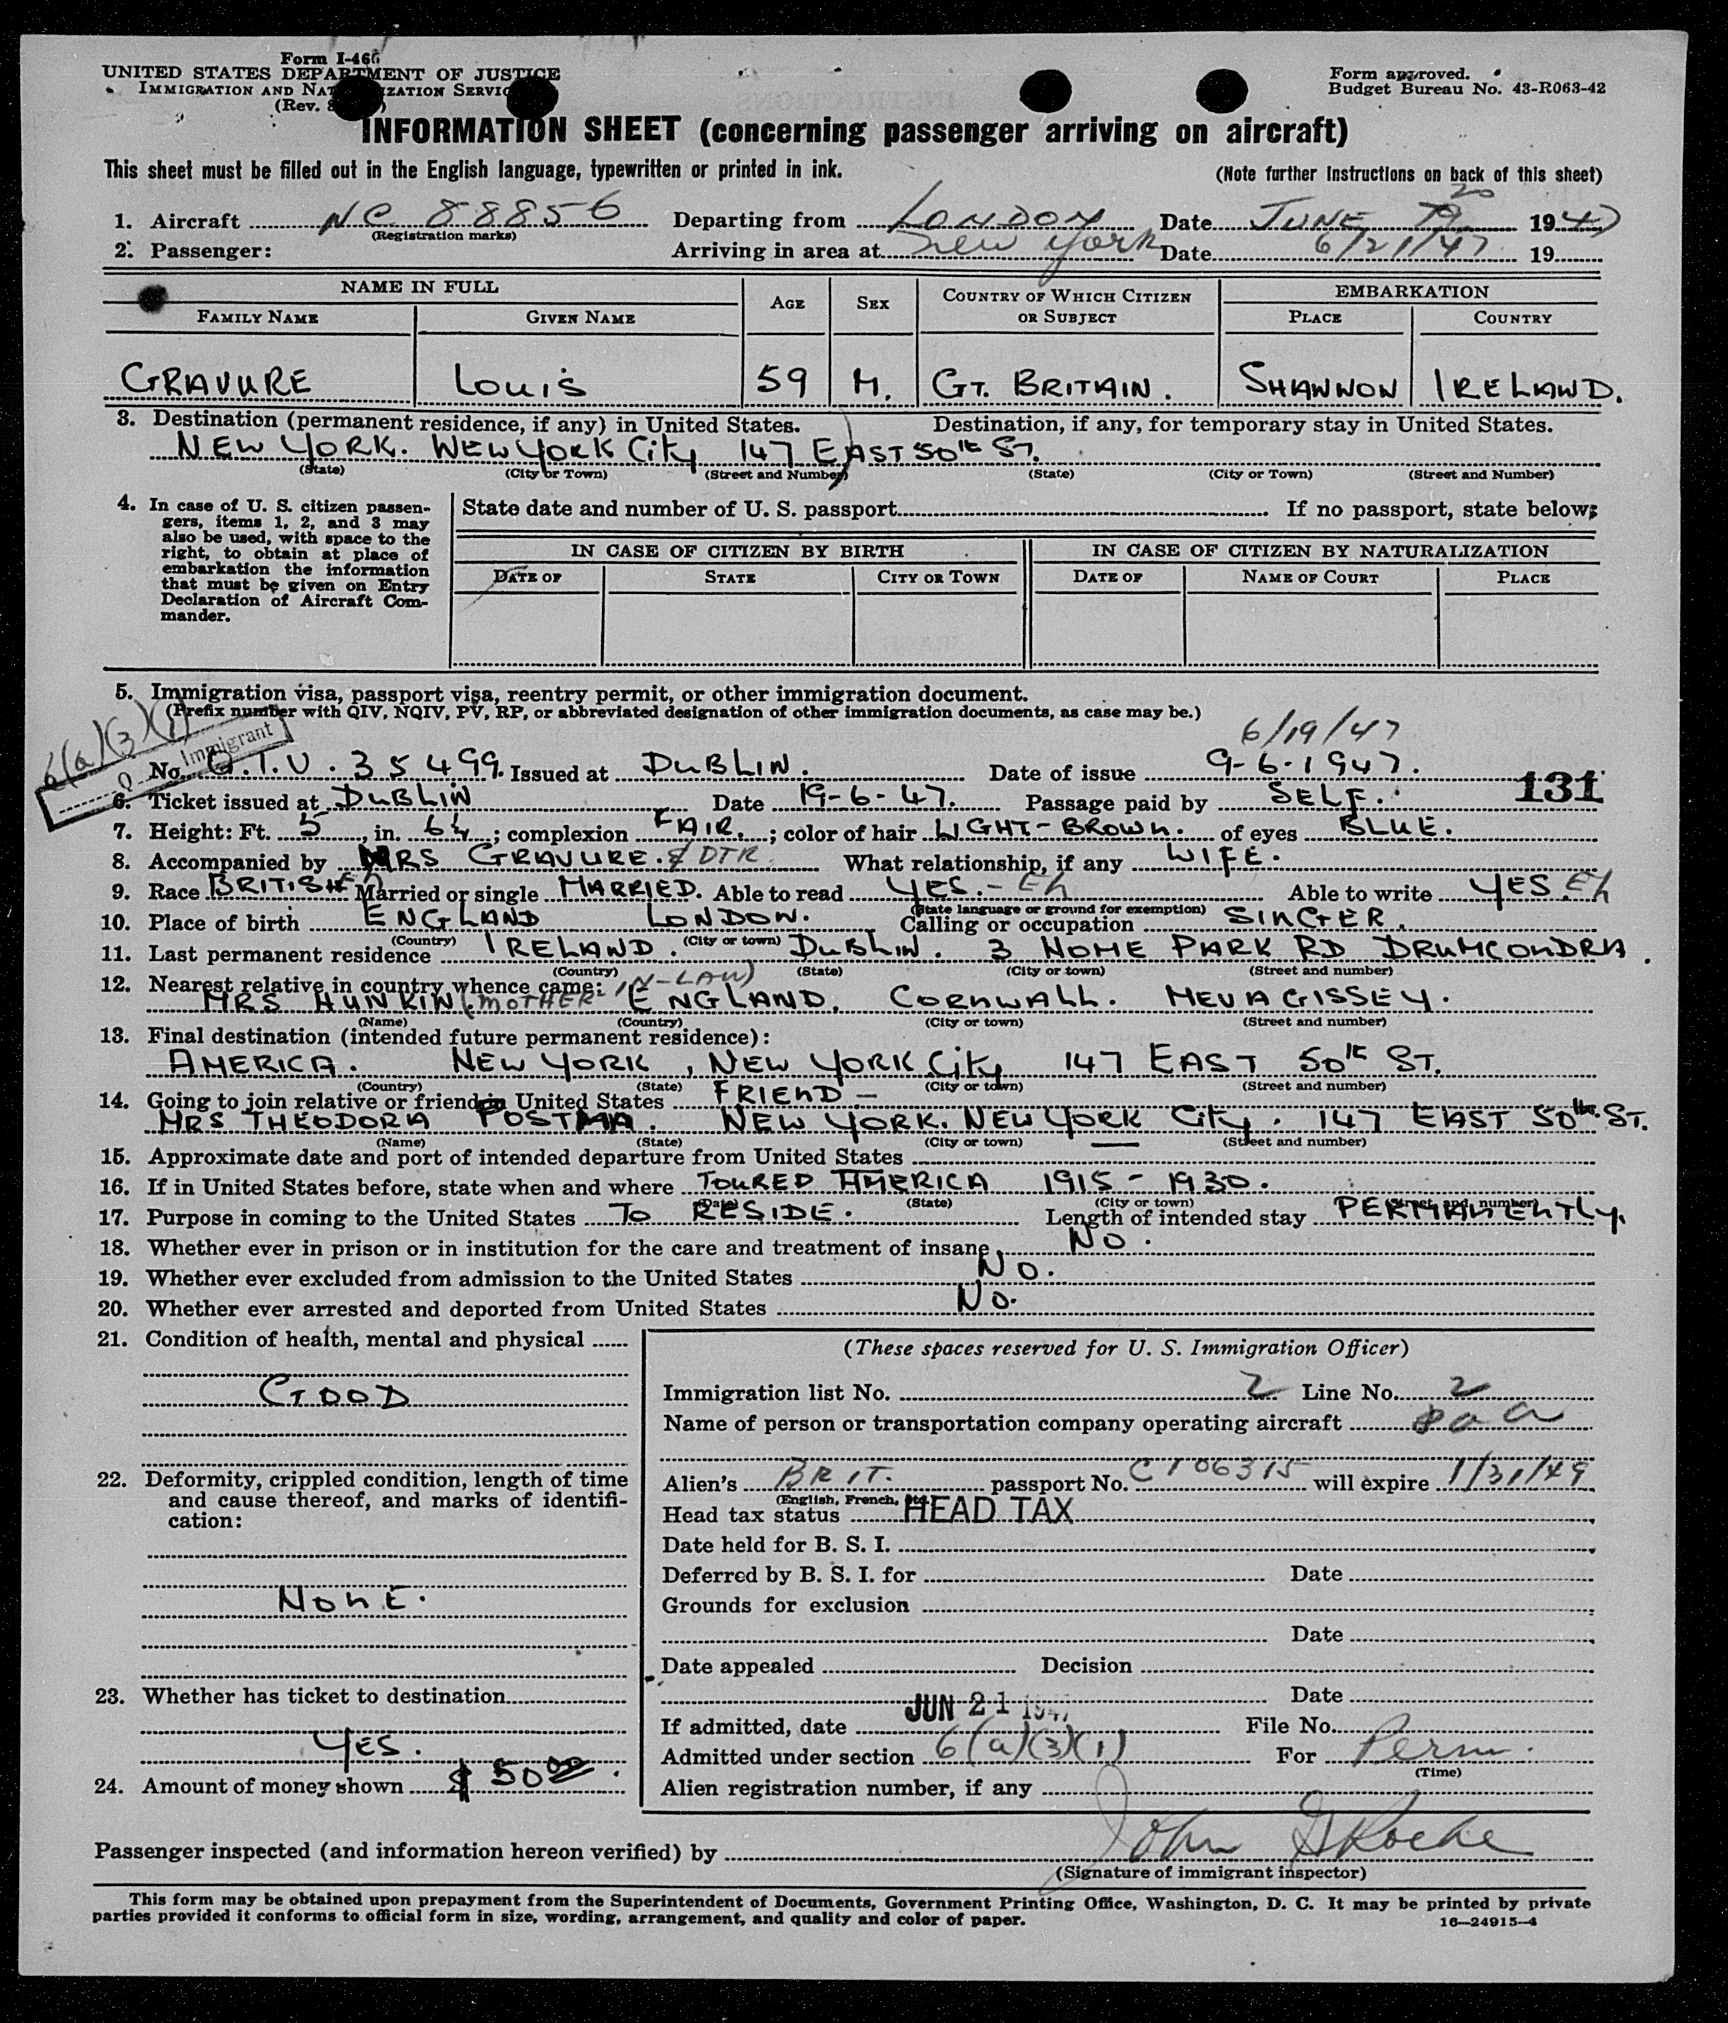 Form I-466
UNITED STATES DEPARTMENT OF JUSTICE
IMMIGRATION AND NATURALIZATION SERVICE
(Rev.
Form approved.
Budget Bureau No. 43-R063-42
INFORMATION SHEET (concerning passenger arriving on aircraft)
This sheet must be filled out in the English language, typewritten or printed in ink. (Note further instructions on back of this sheet)
1. Aircraft NC 88856 Departing from LONDON Date JUNE 19 20 1947
(Registration marks)
2. Passenger: Arriving in area at New York Date 6/21/47 19
NAME IN FULL AGE SEX COUNTRY OF WHICH CITIZEN OR SUBJECT EMBARKATION
FAMILY NAME GIVEN NAME PLACE COUNTRY
GRAVURE LOUIS 59 M. GT. BRITAIN. SHANNON IRELAND.
3. Destination (permanent residence, if any) in United States. Destination, if any, for temporary stay in United States.
NEW YORK. NEW YORK City 147 EAST 50th ST.
(State) (City or Town) (Street and Number) (State) (City or Town) (Street and Number)
4. In case of U. S. citizen passengers, items 1, 2, and 3 may also be used, with space to the right, to obtain at place of embarkation the information that must be given on Entry Declaration of Aircraft Commander.
State date and number of U. S. passport If no passport, state below:
IN CASE OF CITIZEN BY BIRTH IN CASE OF CITIZEN BY NATURALIZATION
DATE OF STATE CITY OR TOWN DATE OF NAME OF COURT PLACE
5. Immigration visa, passport visa, reentry permit, or other immigration document.
(Prefix number with QIV, NQIV, PV, RP, or abbreviated designation of other immigration documents, as case may be.)
6(a)(3)(1)
Q Immigrant
6/19/47
No. Q.I.V. 35499. Issued at DUBLIN. Date of issue 9-6-1947.
131
6. Ticket issued at DUBLIN Date 19-6-47. Passage paid by SELF.
7. Height: Ft. 5, in. 6½; complexion FAIR.; color of hair LIGHT-BROWN. of eyes BLUE.
8. Accompanied by MRS GRAVURE. & DTR What relationship, if any WIFE.
9. Race BRITISH Married or single MARRIED. Able to read YES.- Eh Able to write YES. Eh
(State language or ground for exemption)
10. Place of birth ENGLAND LONDON. Calling or occupation SINGER.
(Country) (City or town)
11. Last permanent residence IRELAND. DUBLIN. 3 HOME PARK RD DRUMCONDRA.
(Country) (State) (City or town) (Street and number)
12. Nearest relative in country whence came:
MRS HUNKIN (MOTHER-IN-LAW) ENGLAND. CORNWALL. MEVAGISSEY.
(Name) (Country) (City or town) (Street and number)
13. Final destination (intended future permanent residence):
AMERICA. NEW YORK, NEW YORK City 147 EAST 50th ST.
(Country) (State) (City or town) (Street and number)
14. Going to join relative or friend in United States FRIEND —
MRS THEODORA POSTMA. NEW YORK. NEW YORK City. 147 EAST 50th ST.
(Name) (State) (City or town) (Street and number)
15. Approximate date and port of intended departure from United States
16. If in United States before, state when and where TOURED AMERICA 1915 - 1930.
(Date) (State) (City or town) (Street and number)
17. Purpose in coming to the United States TO RESIDE. Length of intended stay PERMANENTLY.
18. Whether ever in prison or in institution for the care and treatment of insane NO.
19. Whether ever excluded from admission to the United States NO.
20. Whether ever arrested and deported from United States NO.
21. Condition of health, mental and physical
GOOD
22. Deformity, crippled condition, length of time and cause thereof, and marks of identification:
NONE.
23. Whether has ticket to destination
YES.
24. Amount of money shown $ 50 00.
(These spaces reserved for U. S. Immigration Officer)
Immigration list No. 2 Line No. 2
Name of person or transportation company operating aircraft paa
Alien's BRIT. passport No. C106315 will expire 1/31/49
(English, French, etc.)
Head tax status HEAD TAX
Date held for B. S. I.
Deferred by B. S. I. for Date
Grounds for exclusion
Date
Date appealed Decision
Date
If admitted, date JUN 21 1947 File No.
Admitted under section 6(a)(3)(1) For Perm.
(Time)
Alien registration number, if any
Passenger inspected (and information hereon verified) by John G Roche
(Signature of immigrant inspector)
This form may be obtained upon prepayment from the Superintendent of Documents, Government Printing Office, Washington, D. C. It may be printed by private
parties provided it conforms to official form in size, wording, arrangement, and quality and color of paper. 16—24915-4